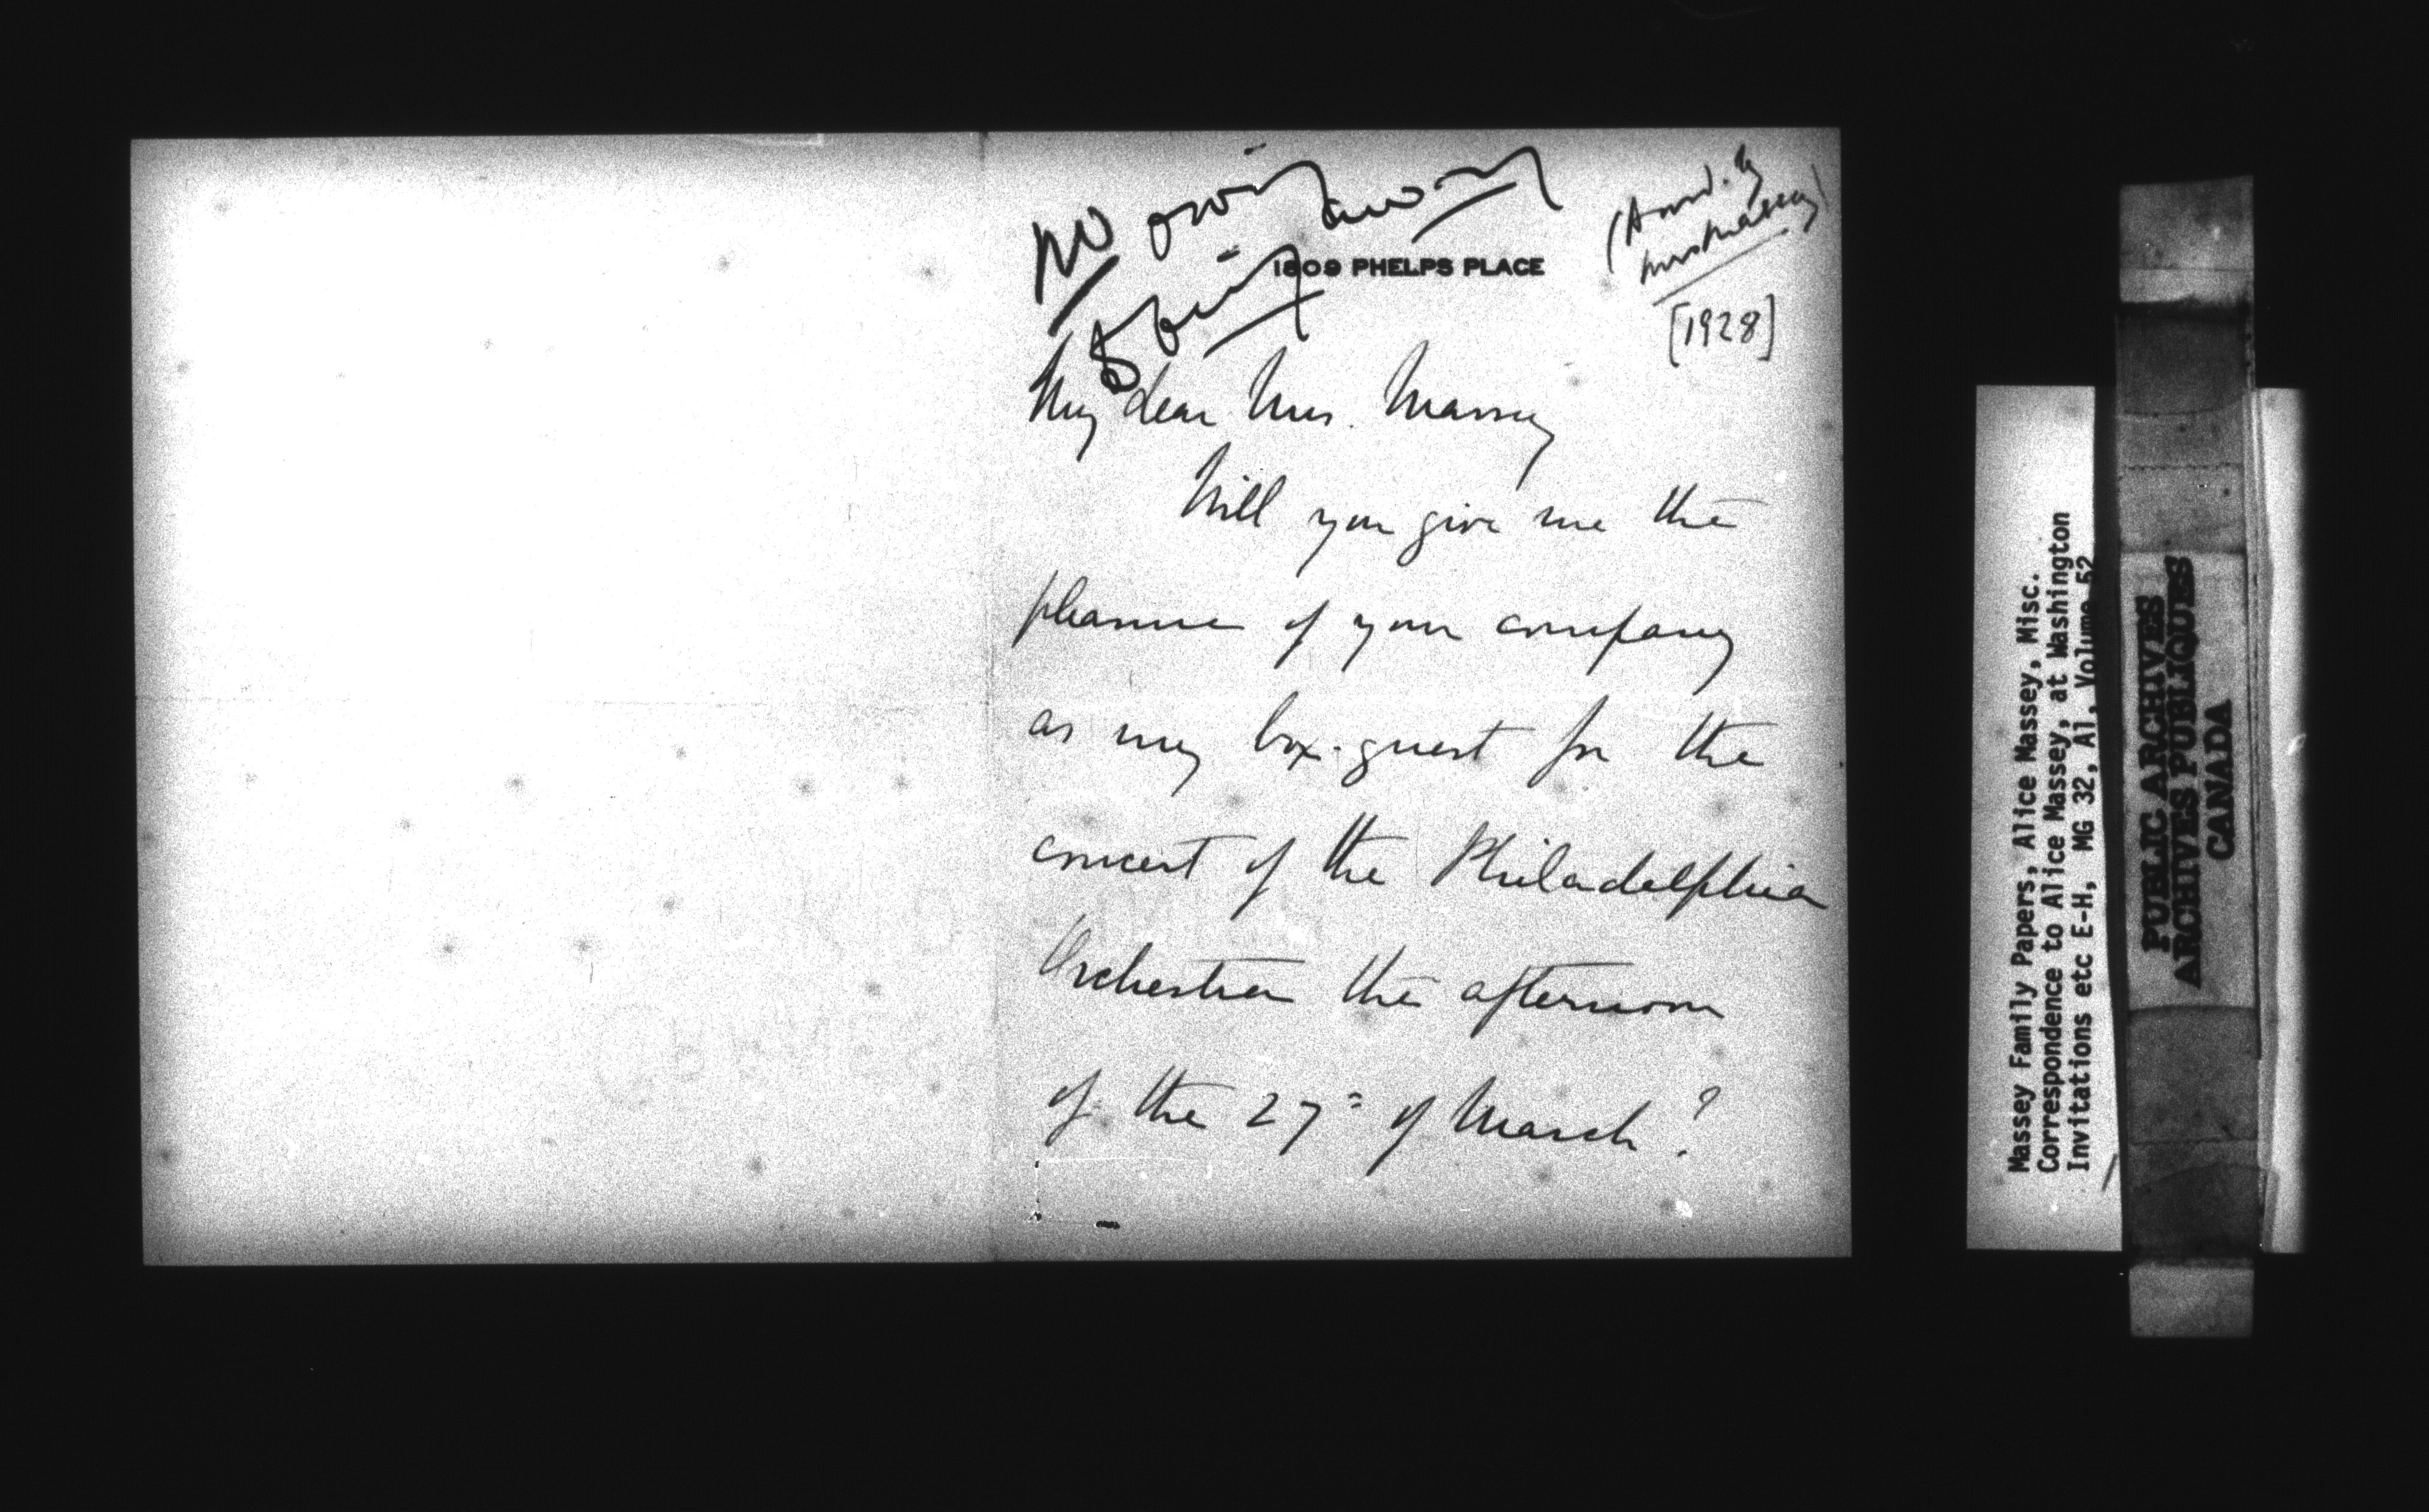 No owing
to being away
(Answd. by
Mrs Massey)
1809 PHELPS PLACE
[1928]
My dear Mrs. Massey
Will you give me the
pleasure of your company
as my box-guest for the
concert of the Philadelphia
Orchestra the afternoon
of the 27= of March?
Massey Family Papers, Alice Massey, Misc.
Correspondence to Alice Massey, at Washington
Invitations etc E-H, MG 32, A1, Volume 52
PUBLIC ARCHIVES
ARCHIVES PUBLIQUES
CANADA